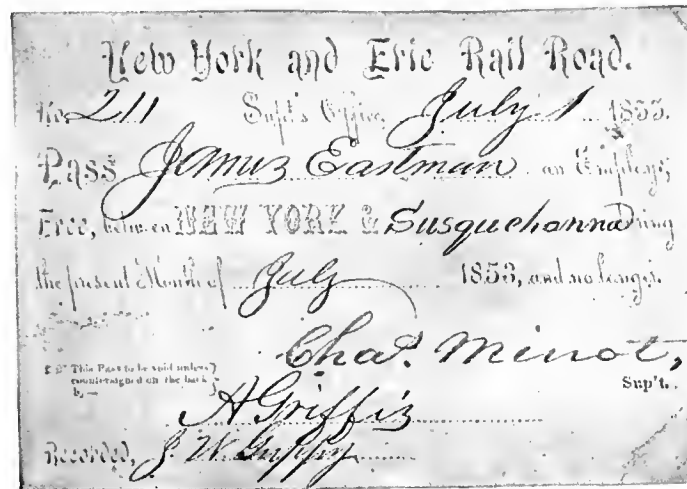 New York and Erie Rail Road.
No. 211 Supt's Office, July 1 1853.
Pass James Eastman an Employé,
Free, between NEW YORK & Susquehanna during
the present Month of July 1853, and no longer.
Chas. Minot,
Sup't.
This Pass to be void unless
countersigned on the back
by—
A Griffin
Recorded, J. W. Guppy